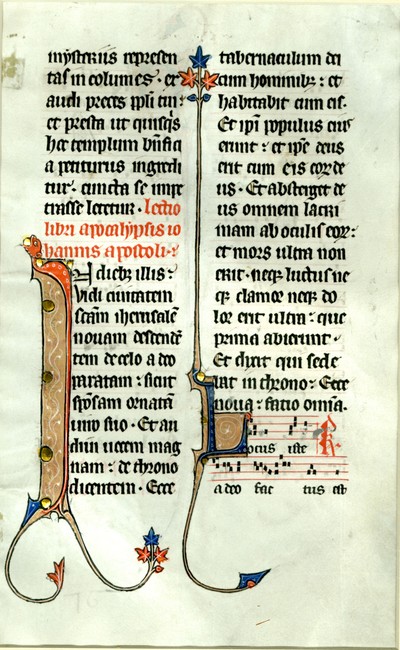 mysteriis represen
tas incolumes · et
audi preces ppli tui :
et presta ut quisqs
hoc templum bnficia
a petiturus ingredi
tur · cuncta se impe
trasse letetur · Lectio
libri apocalypsis io
hannis apostoli :
In diebz illis :
vidi civitatem
scam iherusalem
novam descende
tem de celo a deo
paratam : sicut
sponsam ornata
viro suo · Et au
divi vocem mag
nam : de throno
dicentem · Ecce
tabernaculum dei
cum hominibz : et
habitabit cum eis ·
Et ipi populus eius
erunt : et ipse deus
erit cum eis eorz de
us · Et absterget de
us omnem lacri
mam ab oculis eorz :
et mors ultra non
erit · neqz luctus ne
qz clamor neqz do
lor erit ultra : que
prima abierunt ·
Et dixit qui sede
bat in throno : Ecce
nova : facio omnia ·
Locus iste R
a deo fac tus est